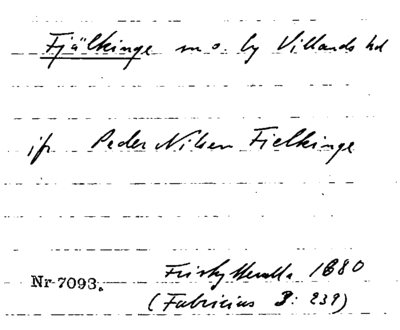 Fjälkinge sn o. by Villands hd
jfr Peder Nilsen Fielkinge
Friskytterulla 1680
Nr 7093.
(Fabricius 3: 239)